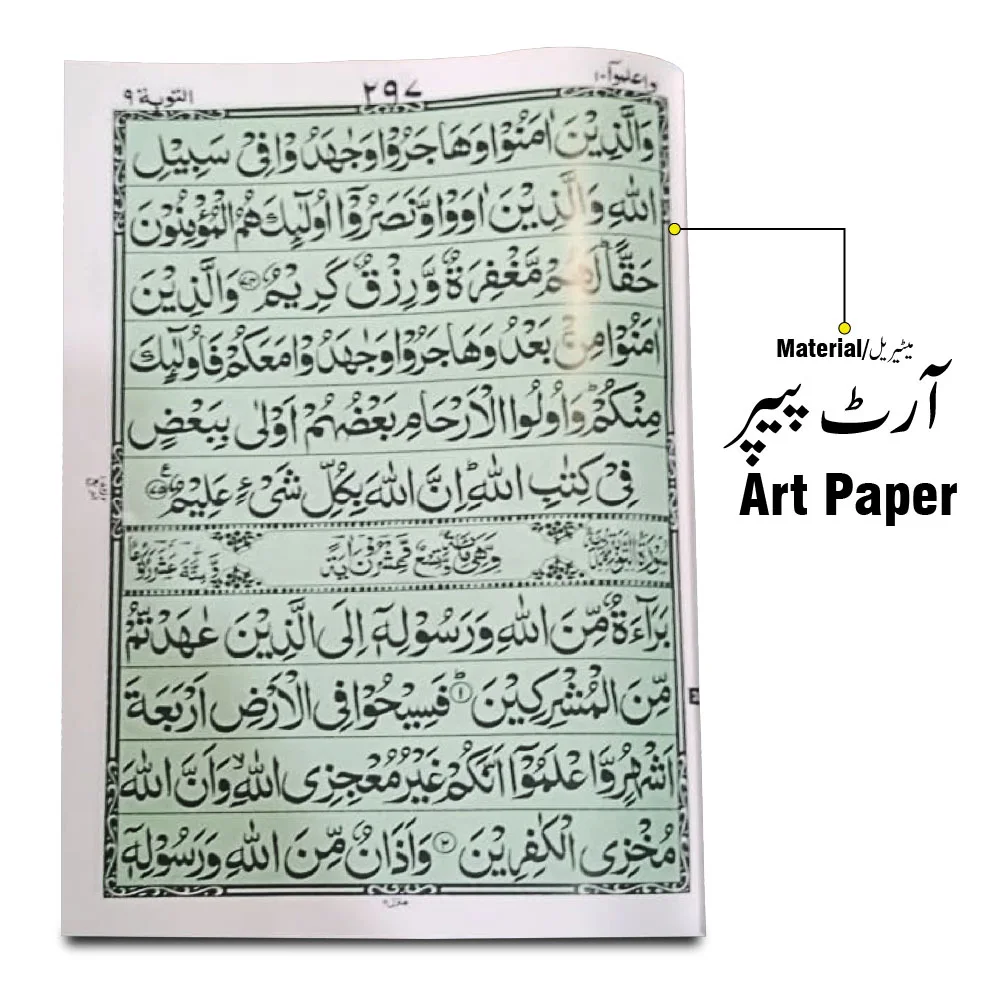 التوبة ٩
٢٩٧
واعلموٓا ١٠
وَالَّذِيْنَ اٰمَنُوْا وَهَاجَرُوْا وَجٰهَدُوْا فِيْ سَبِيْلِ
اللّٰهِ وَالَّذِيْنَ اٰوَوْا وَّنَصَرُوْٓا اُولٰٓئِكَ هُمُ الْمُؤْمِنُوْنَ
حَقًّا ؕ لَهُمْ مَّغْفِرَةٌ وَّرِزْقٌ كَرِيْمٌ ۝۷۴ وَالَّذِيْنَ
اٰمَنُوْا مِنْۢ بَعْدُ وَهَاجَرُوْا وَجٰهَدُوْا مَعَكُمْ فَاُولٰٓئِكَ
مِنْكُمْ ؕ وَاُولُوا الْاَرْحَامِ بَعْضُهُمْ اَوْلٰى بِبَعْضٍ
فِيْ كِتٰبِ اللّٰهِ ؕ اِنَّ اللّٰهَ بِكُلِّ شَيْءٍ عَلِيْمٌ ۝۷۵
بَرَآءَةٌ مِّنَ اللّٰهِ وَرَسُوْلِهٖٓ اِلَى الَّذِيْنَ عٰهَدْتُّمْ
مِّنَ الْمُشْرِكِيْنَ ؕ ۝۱ فَسِيْحُوْا فِي الْاَرْضِ اَرْبَعَةَ
اَشْهُرٍ وَّاعْلَمُوْٓا اَنَّكُمْ غَيْرُ مُعْجِزِي اللّٰهِ ۙ وَاَنَّ اللّٰهَ
مُخْزِي الْكٰفِرِيْنَ ۝۲ وَاَذَانٌ مِّنَ اللّٰهِ وَرَسُوْلِهٖٓ
منزل ٢
Material/میٹیریل
آرٹ پیپر
Art Paper